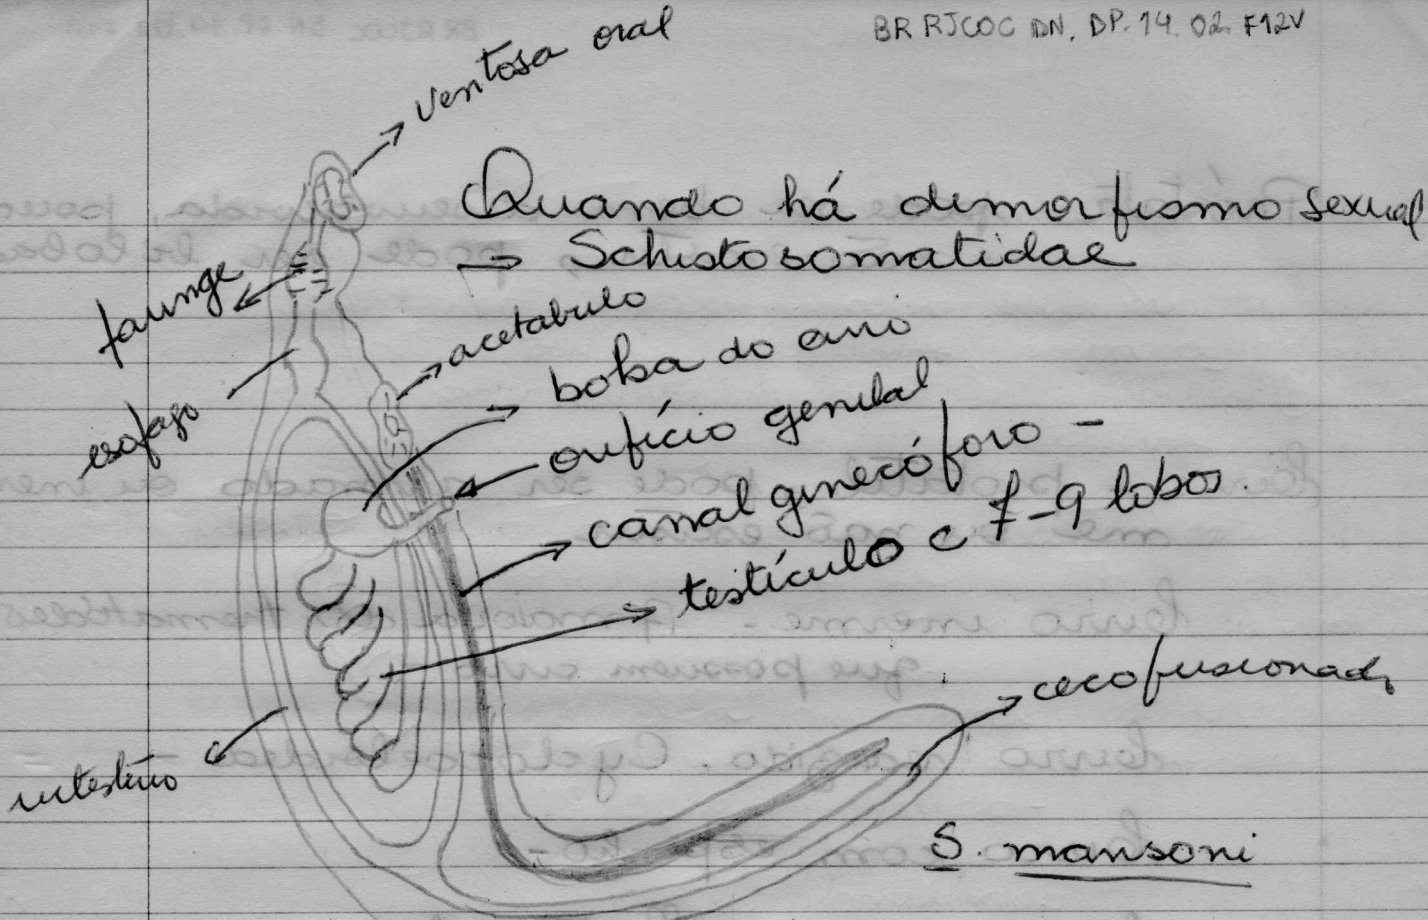 BR RJCOC DN. DP. 14. 02. F12V
ventosa oral
Quando há dimorfismo sexual
→ Schistosomatidae
faringe
acetabulo
bolsa do cirro
esofago
orifício genital
canal ginecóforo –
testículo c 7-9 lobos.
ceco fusionado
intestino
S. mansoni